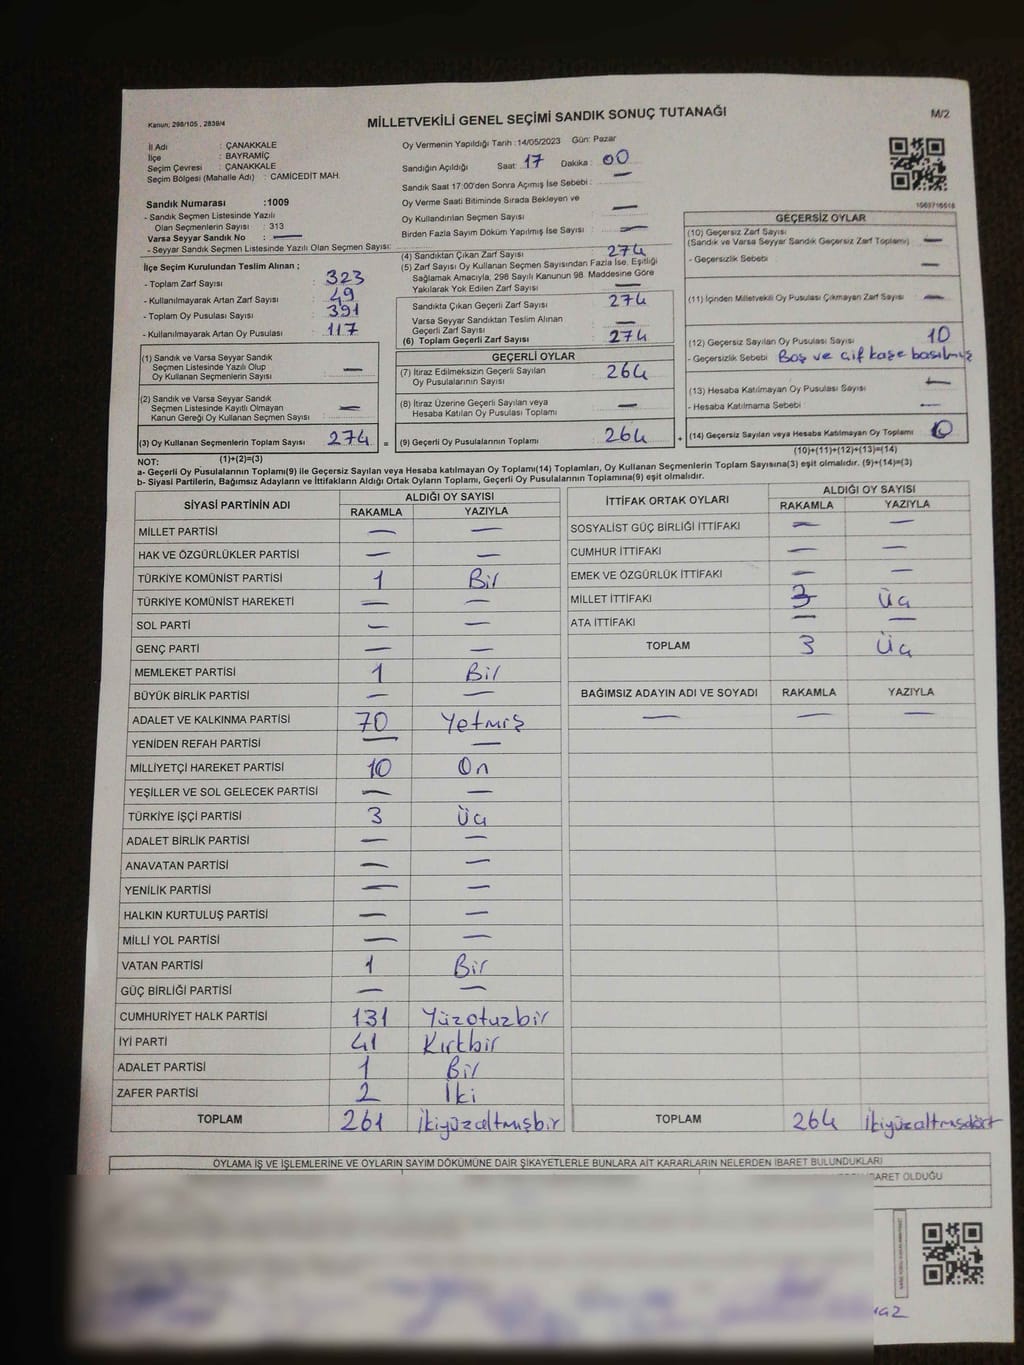 Kanun; 298/105 , 2839/4
MİLLETVEKİLİ GENEL SEÇİMİ SANDIK SONUÇ TUTANAĞI
M/2
İl Adı : ÇANAKKALE
İlçe : BAYRAMİÇ
Seçim Çevresi : ÇANAKKALE
Seçim Bölgesi (Mahalle Adı) : CAMİCEDİT MAH.
Sandık Numarası :1009
- Sandık Seçmen Listesinde Yazılı
Olan Seçmenlerin Sayısı : 313
Varsa Seyyar Sandık No : —
- Seyyar Sandık Seçmen Listesinde Yazılı Olan Seçmen Sayısı:
Oy Vermenin Yapıldığı Tarih :14/05/2023 Gün: Pazar
Sandığın Açıldığı Saat: 17 Dakika : 00
Sandık Saat 17:00'den Sonra Açımış İse Sebebi : —
Oy Verme Saati Bitiminde Sırada Bekleyen ve
Oy Kullandırılan Seçmen Sayısı —
Birden Fazla Sayım Döküm Yapılmış İse Sayısı : —
İlçe Seçim Kurulundan Teslim Alınan ;
- Toplam Zarf Sayısı : 323
- Kullanılmayarak Artan Zarf Sayısı : 49
- Toplam Oy Pusulası Sayısı : 391
- Kullanılmayarak Artan Oy Pusulası : 117
(1) Sandık ve Varsa Seyyar Sandık
Seçmen Listesinde Yazılı Olup
Oy Kullanan Seçmenlerin Sayısı —
(2) Sandık ve Varsa Seyyar Sandık
Seçmen Listesinde Kayıtlı Olmayan
Kanun Gereği Oy Kullanan Seçmen Sayısı —
(3) Oy Kullanan Seçmenlerin Toplam Sayısı 274 =
(1)+(2)=(3)
(4) Sandıktan Çıkan Zarf Sayısı : 274
(5) Zarf Sayısı Oy Kullanan Seçmen Sayısından Fazla İse, Eşitliği
Sağlamak Amacıyla, 298 Sayılı Kanunun 98. Maddesine Göre
Yakılarak Yok Edilen Zarf Sayısı : —
Sandıkta Çıkan Geçerli Zarf Sayısı 274
Varsa Seyyar Sandıktan Teslim Alınan
Geçerli Zarf Sayısı —
(6) Toplam Geçerli Zarf Sayısı : 274
GEÇERLİ OYLAR
(7) İtiraz Edilmeksizin Geçerli Sayılan
Oy Pusulalarının Sayısı : 264
(8) İtiraz Üzerine Geçerli Sayılan veya
Hesaba Katılan Oy Pusulası Toplamı —
(9) Geçerli Oy Pusulalarının Toplamı : 264 +
1003716618
GEÇERSİZ OYLAR
(10) Geçersiz Zarf Sayısı
(Sandık ve Varsa Seyyar Sandık Geçersiz Zarf Toplamı) —
- Geçersizlik Sebebi —
(11) İçinden Milletvekili Oy Pusulası Çıkmayan Zarf Sayısı —
(12) Geçersiz Sayılan Oy Pusulası Sayısı 10
- Geçersizlik Sebebi Boş ve çif kaşe basılmış
(13) Hesaba Katılmayan Oy Pusulası Sayısı —
- Hesaba Katılmama Sebebi —
(14) Geçersiz Sayılan veya Hesaba Katılmayan Oy Toplamı
(10)+(11)+(12)+(13)=(14)
NOT:
a- Geçerli Oy Pusulalarının Toplamı(9) ile Geçersiz Sayılan veya Hesaba katılmayan Oy Toplamı(14) Toplamları, Oy Kullanan Seçmenlerin Toplam Sayısına(3) eşit olmalıdır. (9)+(14)=(3)
b- Siyasi Partilerin, Bağımsız Adayların ve İttifakların Aldığı Ortak Oyların Toplamı, Geçerli Oy Pusulalarının Toplamına(9) eşit olmalıdır.
SİYASİ PARTİNİN ADI ALDIĞI OY SAYISI
RAKAMLA YAZIYLA
MİLLET PARTİSİ — —
HAK VE ÖZGÜRLÜKLER PARTİSİ — —
TÜRKİYE KOMÜNİST PARTİSİ 1 Bir
TÜRKİYE KOMÜNİST HAREKETİ — —
SOL PARTİ — —
GENÇ PARTİ — —
MEMLEKET PARTİSİ 1 Bir
BÜYÜK BİRLİK PARTİSİ — —
ADALET VE KALKINMA PARTİSİ 70 Yetmiş
YENİDEN REFAH PARTİSİ — —
MİLLİYETÇİ HAREKET PARTİSİ 10 On
YEŞİLLER VE SOL GELECEK PARTİSİ — —
TÜRKİYE İŞÇİ PARTİSİ 3 Üç
ADALET BİRLİK PARTİSİ — —
ANAVATAN PARTİSİ — —
YENİLİK PARTİSİ — —
HALKIN KURTULUŞ PARTİSİ — —
MİLLİ YOL PARTİSİ — —
VATAN PARTİSİ 1 Bir
GÜÇ BİRLİĞİ PARTİSİ — —
CUMHURİYET HALK PARTİSİ 131 Yüzotuzbir
İYİ PARTİ 41 Kırkbir
ADALET PARTİSİ 1 Bir
ZAFER PARTİSİ 2 İki
TOPLAM 261 İkiyüzaltmışbir
İTTİFAK ORTAK OYLARI ALDIĞI OY SAYISI
RAKAMLA YAZIYLA
SOSYALİST GÜÇ BİRLİĞİ İTTİFAKI — —
CUMHUR İTTİFAKI — —
EMEK VE ÖZGÜRLÜK İTTİFAKI — —
MİLLET İTTİFAKI 3 Üç
ATA İTTİFAKI — —
TOPLAM 3 Üç
BAĞIMSIZ ADAYIN ADI VE SOYADI RAKAMLA YAZIYLA
— — —
TOPLAM 264 İkiyüzaltmışdört
OYLAMA İŞ VE İŞLEMLERİNE VE OYLARIN SAYIM DÖKÜMÜNE DAİR ŞİKAYETLERLE BUNLARA AİT KARARLARIN NELERDEN İBARET BULUNDUKLARI
BARET OLDUĞU